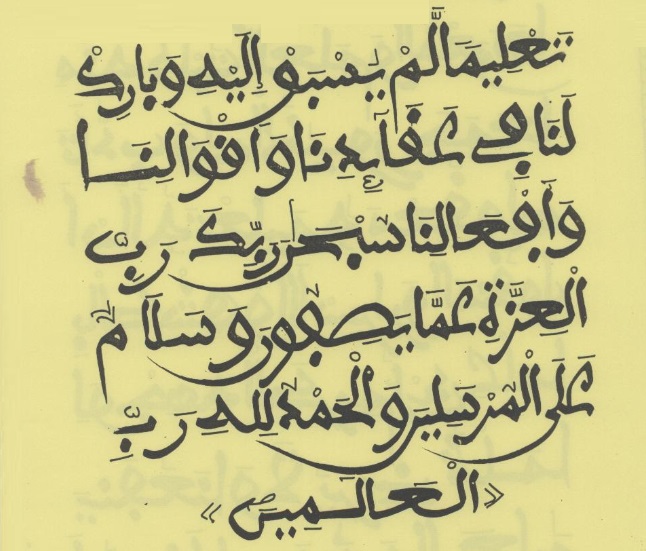 تَعْلِيمًا لَّمْ يُسْبَقْ إِلَيْهِ وَبَارِكْ
لَنَا فِي عَقَآئِدِنَا وَأَقْوَالِنَا
وَأَفْعَالِنَا سُبْحَٰنَ رَبِّكَ رَبِّ
الْعِزَّةِ عَمَّا يَصِفُونَ وَسَلَامٌ
عَلَى الْمُرْسَلِينَ وَالْحَمْدُ لِلهِ رَبِّ
«الْعَالَمِينَ»